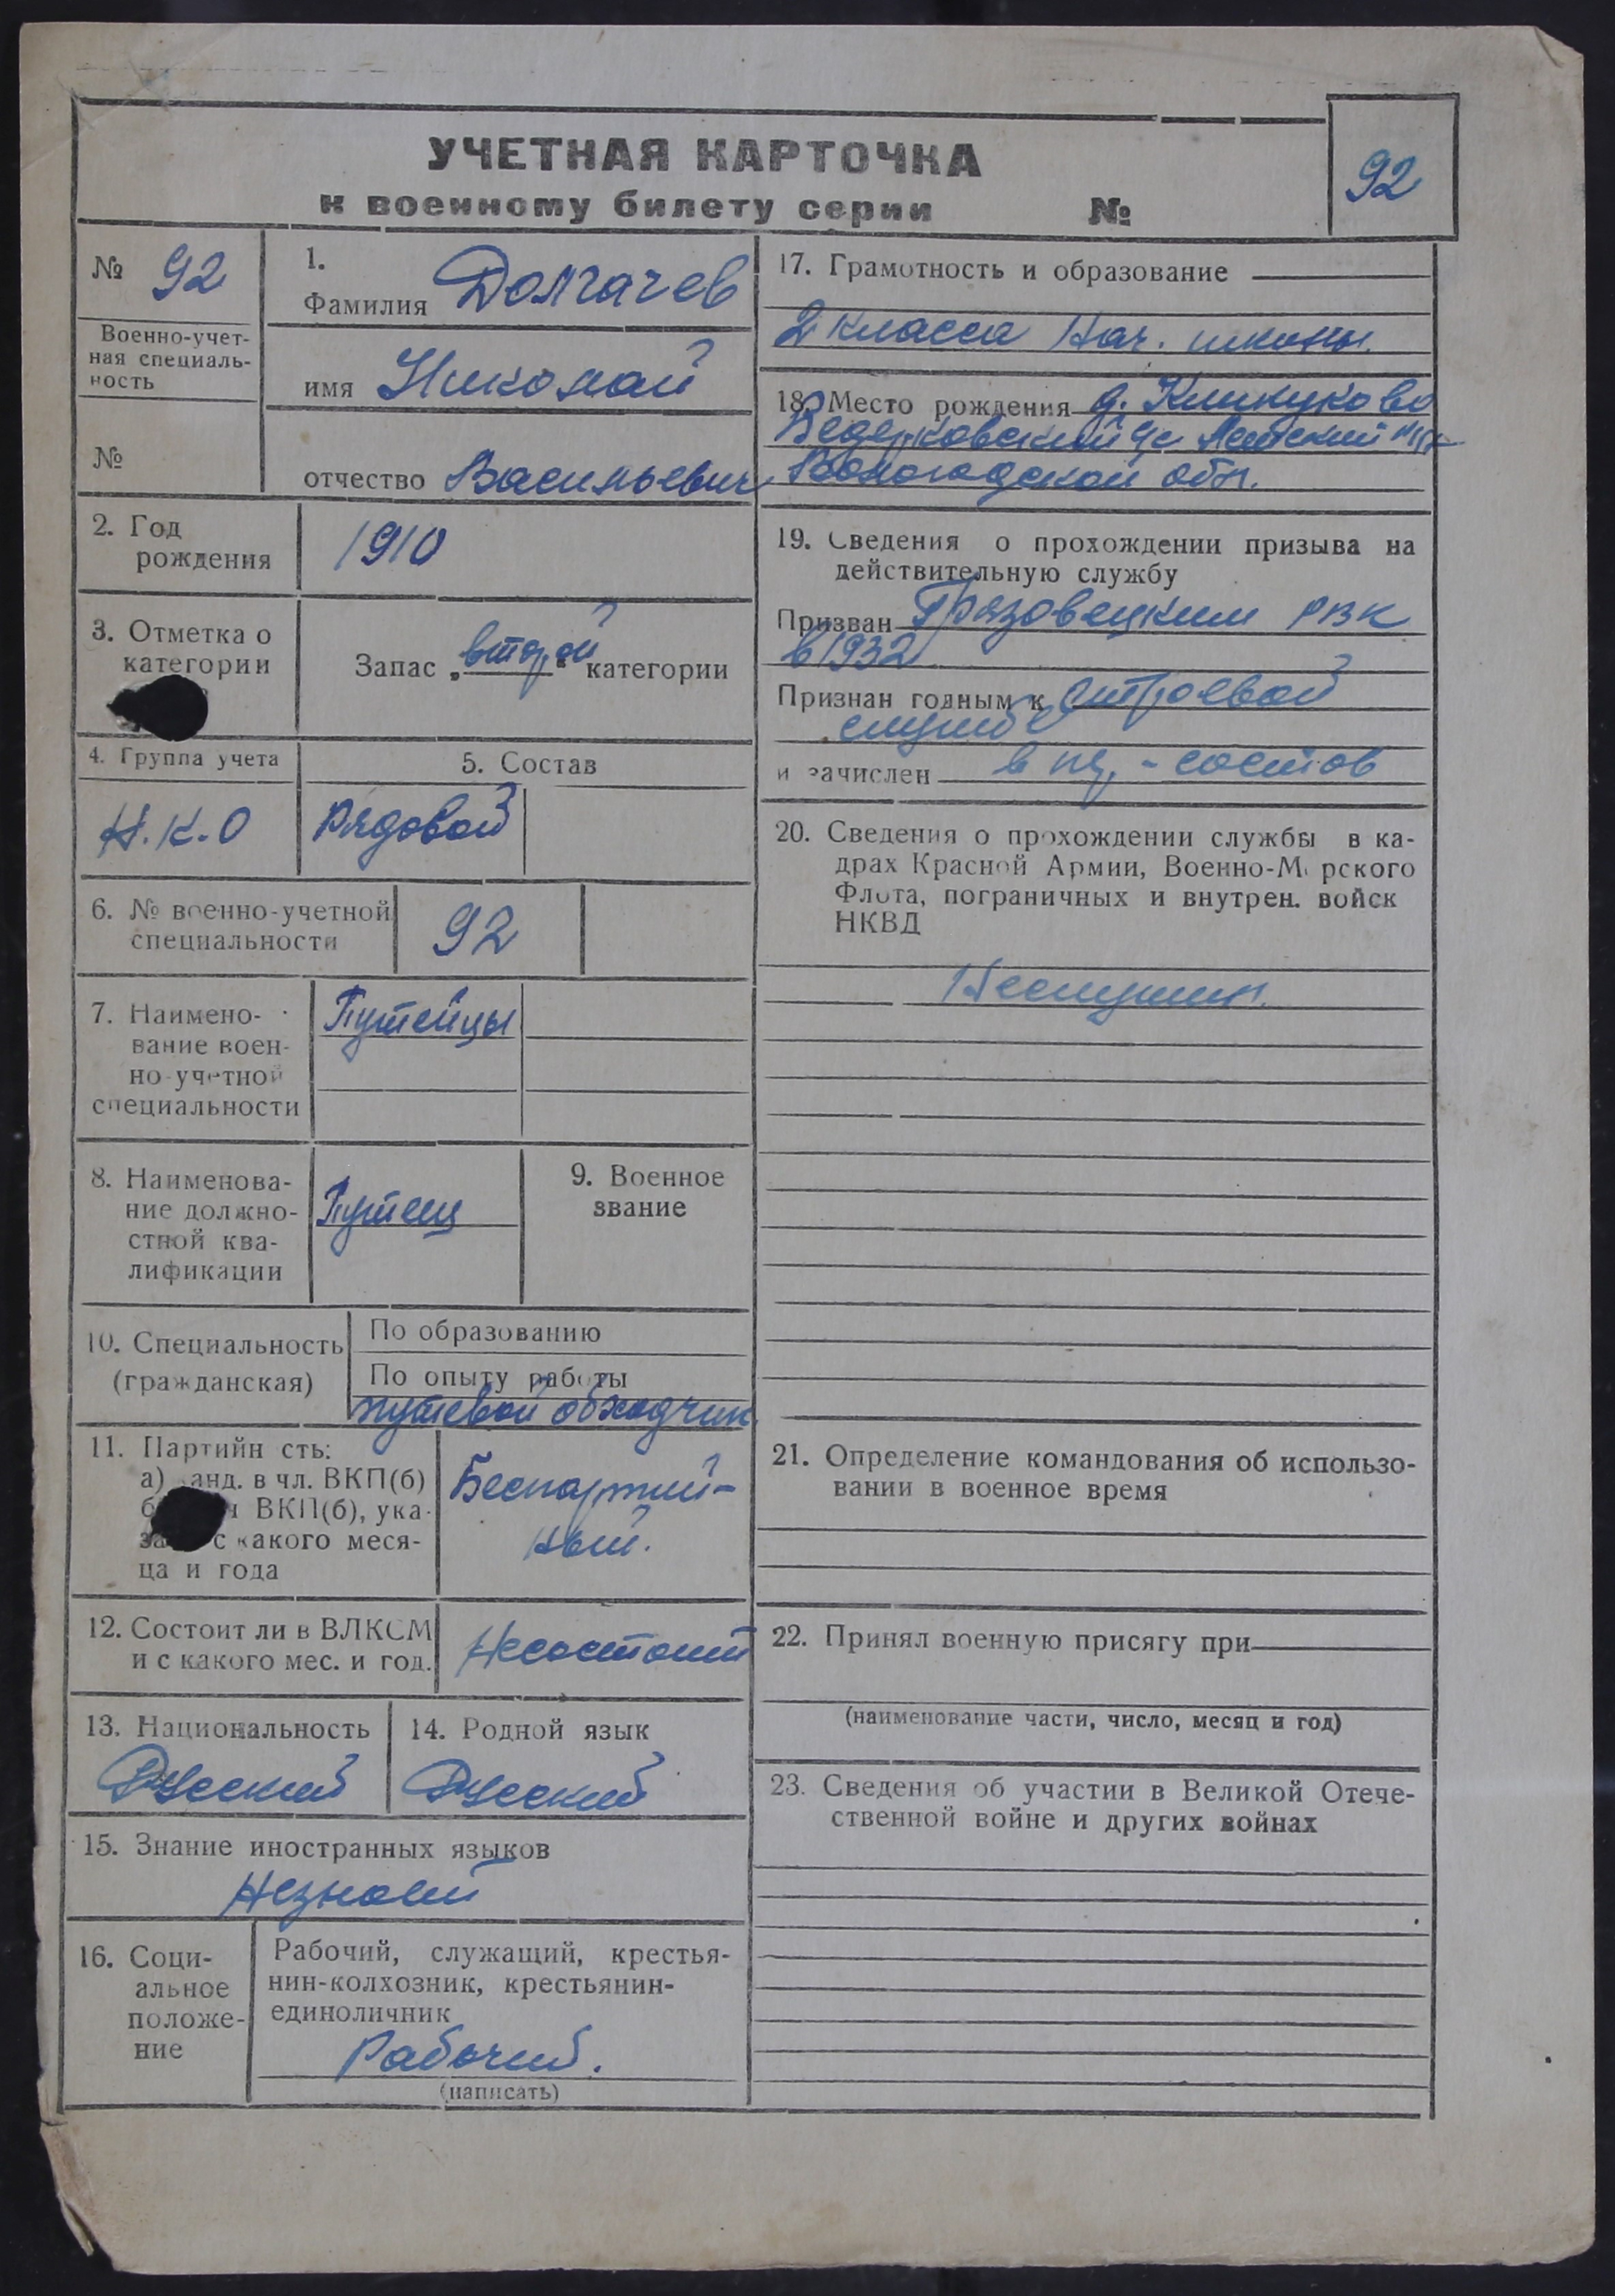 УЧЕТНАЯ КАРТОЧКА
к военному билету серии №
92
№ 92
Военно-учет-
ная специаль-
ность
№
1.
Фамилия Долгачев
имя Николай
отчество Васильевич
2. Год
рождения
1910
3. Отметка о
категории
Запас „второй“ категории
4. Группа учета
Н.К.О
5. Состав
Рядовой
6. № военно-учетной
специальности
92
7. Наимено-
вание воен-
но-учетной
специальности
Путейцы
8. Наименова-
ние должно-
стной ква-
лификации
Путеец
9. Военное
звание
10. Специальность
(гражданская)
По образованию
По опыту работы
путевой обходчик
11. Партийн сть:
а) анд. в чл. ВКП(б)
ВКП(б), ука-
с какого меся-
ца и года
Беспартий-
ный.
12. Состоит ли в ВЛКСМ
и с какого мес. и год.
Несостоит
13. Национальность
Русский
14. Родной язык
Русский
15. Знание иностранных языков
Незнает
16. Соци-
альное
положе-
ние
Рабочий, служащий, крестья-
нин-колхозник, крестьянин-
единоличник
Рабочий.
(написать)
17. Грамотность и образование
2 класса Нач. школы.
18. Место рождения д.
Ведерковский с/с
Вологодской обл.
19. Сведения о прохождении призыва на
действительную службу
Призван Грязовецким РВК
в 1932
Признан годным к строевой
службе
и зачислен в ряд.-состав
20. Сведения о прохождении службы в ка-
драх Красной Армии, Военно-М рского
Флота, пограничных и внутрен. войск
НКВД
Неслужил.
21. Определение командования об использо-
вании в военное время
22. Принял военную присягу при
(наименование части, число, месяц и год)
23. Сведения об участии в Великой Отече-
ственной войне и других войнах